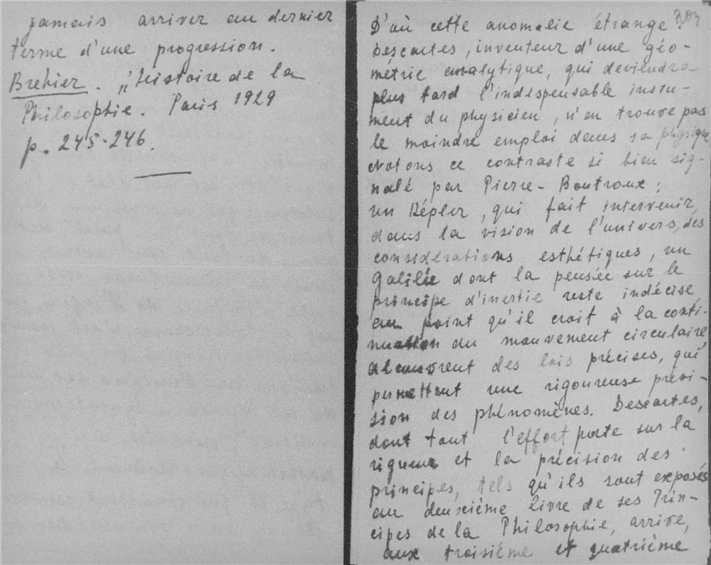 jamais arriver au dernier
terme d'une progression.
Brehier. „Histoire de la
Philosophie. Paris 1929
p. 245-246.
D'où cette anomalie étrange?
Descartes, inventeur d'une géo-
métrie analytique, qui deviendra
plus tard l'indispensable instru-
ment du physicien, n'en trouve pas
le moindre emploi dans sa physique
Notons ce contraste si bien sig-
nalé par Pierre-Boutroux;
un Képler, qui fait intervenir
dans la vision de l'univers, des
considérations esthétiques, un
Galilée dont la pensée sur le
principe d'inertie reste indécise
au point qu'il croit à la conti-
nuation du mouvement circulaire
découvrent des lois précises, qui
permettent une rigoureuse prévi-
sion des phénomènes. Descartes,
dont tout l'effort porte sur la
rigueur et la précision des
principes, tels qu'ils sont exposés
au deuxième livre de ses Prin-
cipes de la Philosophie, arrive,
aux troisième et quatrième